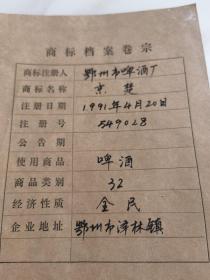 商标档案卷宗
商标注册人 鄂州市啤酒厂
商标名称 京楚
注册日期 1991年4月20日
注册号 549028
公告期
使用商品 啤酒
商品类别 32
经济性质 全民
企业地址 鄂州市泽林镇